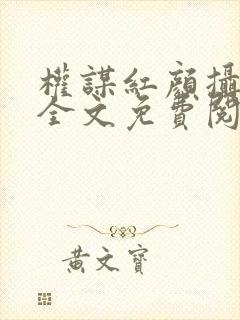 權謀紅顏攝
全文免費閱
黃文寶